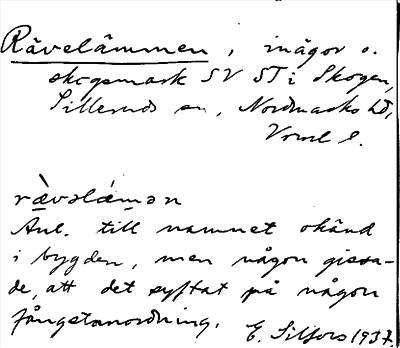 Rävelämmen, inägor o.
skogsmark SV ST i Skogen,
Silleruds sn, Nordmarks hd,
Vrml l.
rä̀vəlǽmən
Anl. till namnet okänd
i bygden, men någon gissa-
de, att det syftat på någon
fångstanordning.
E. Silfors 1937.